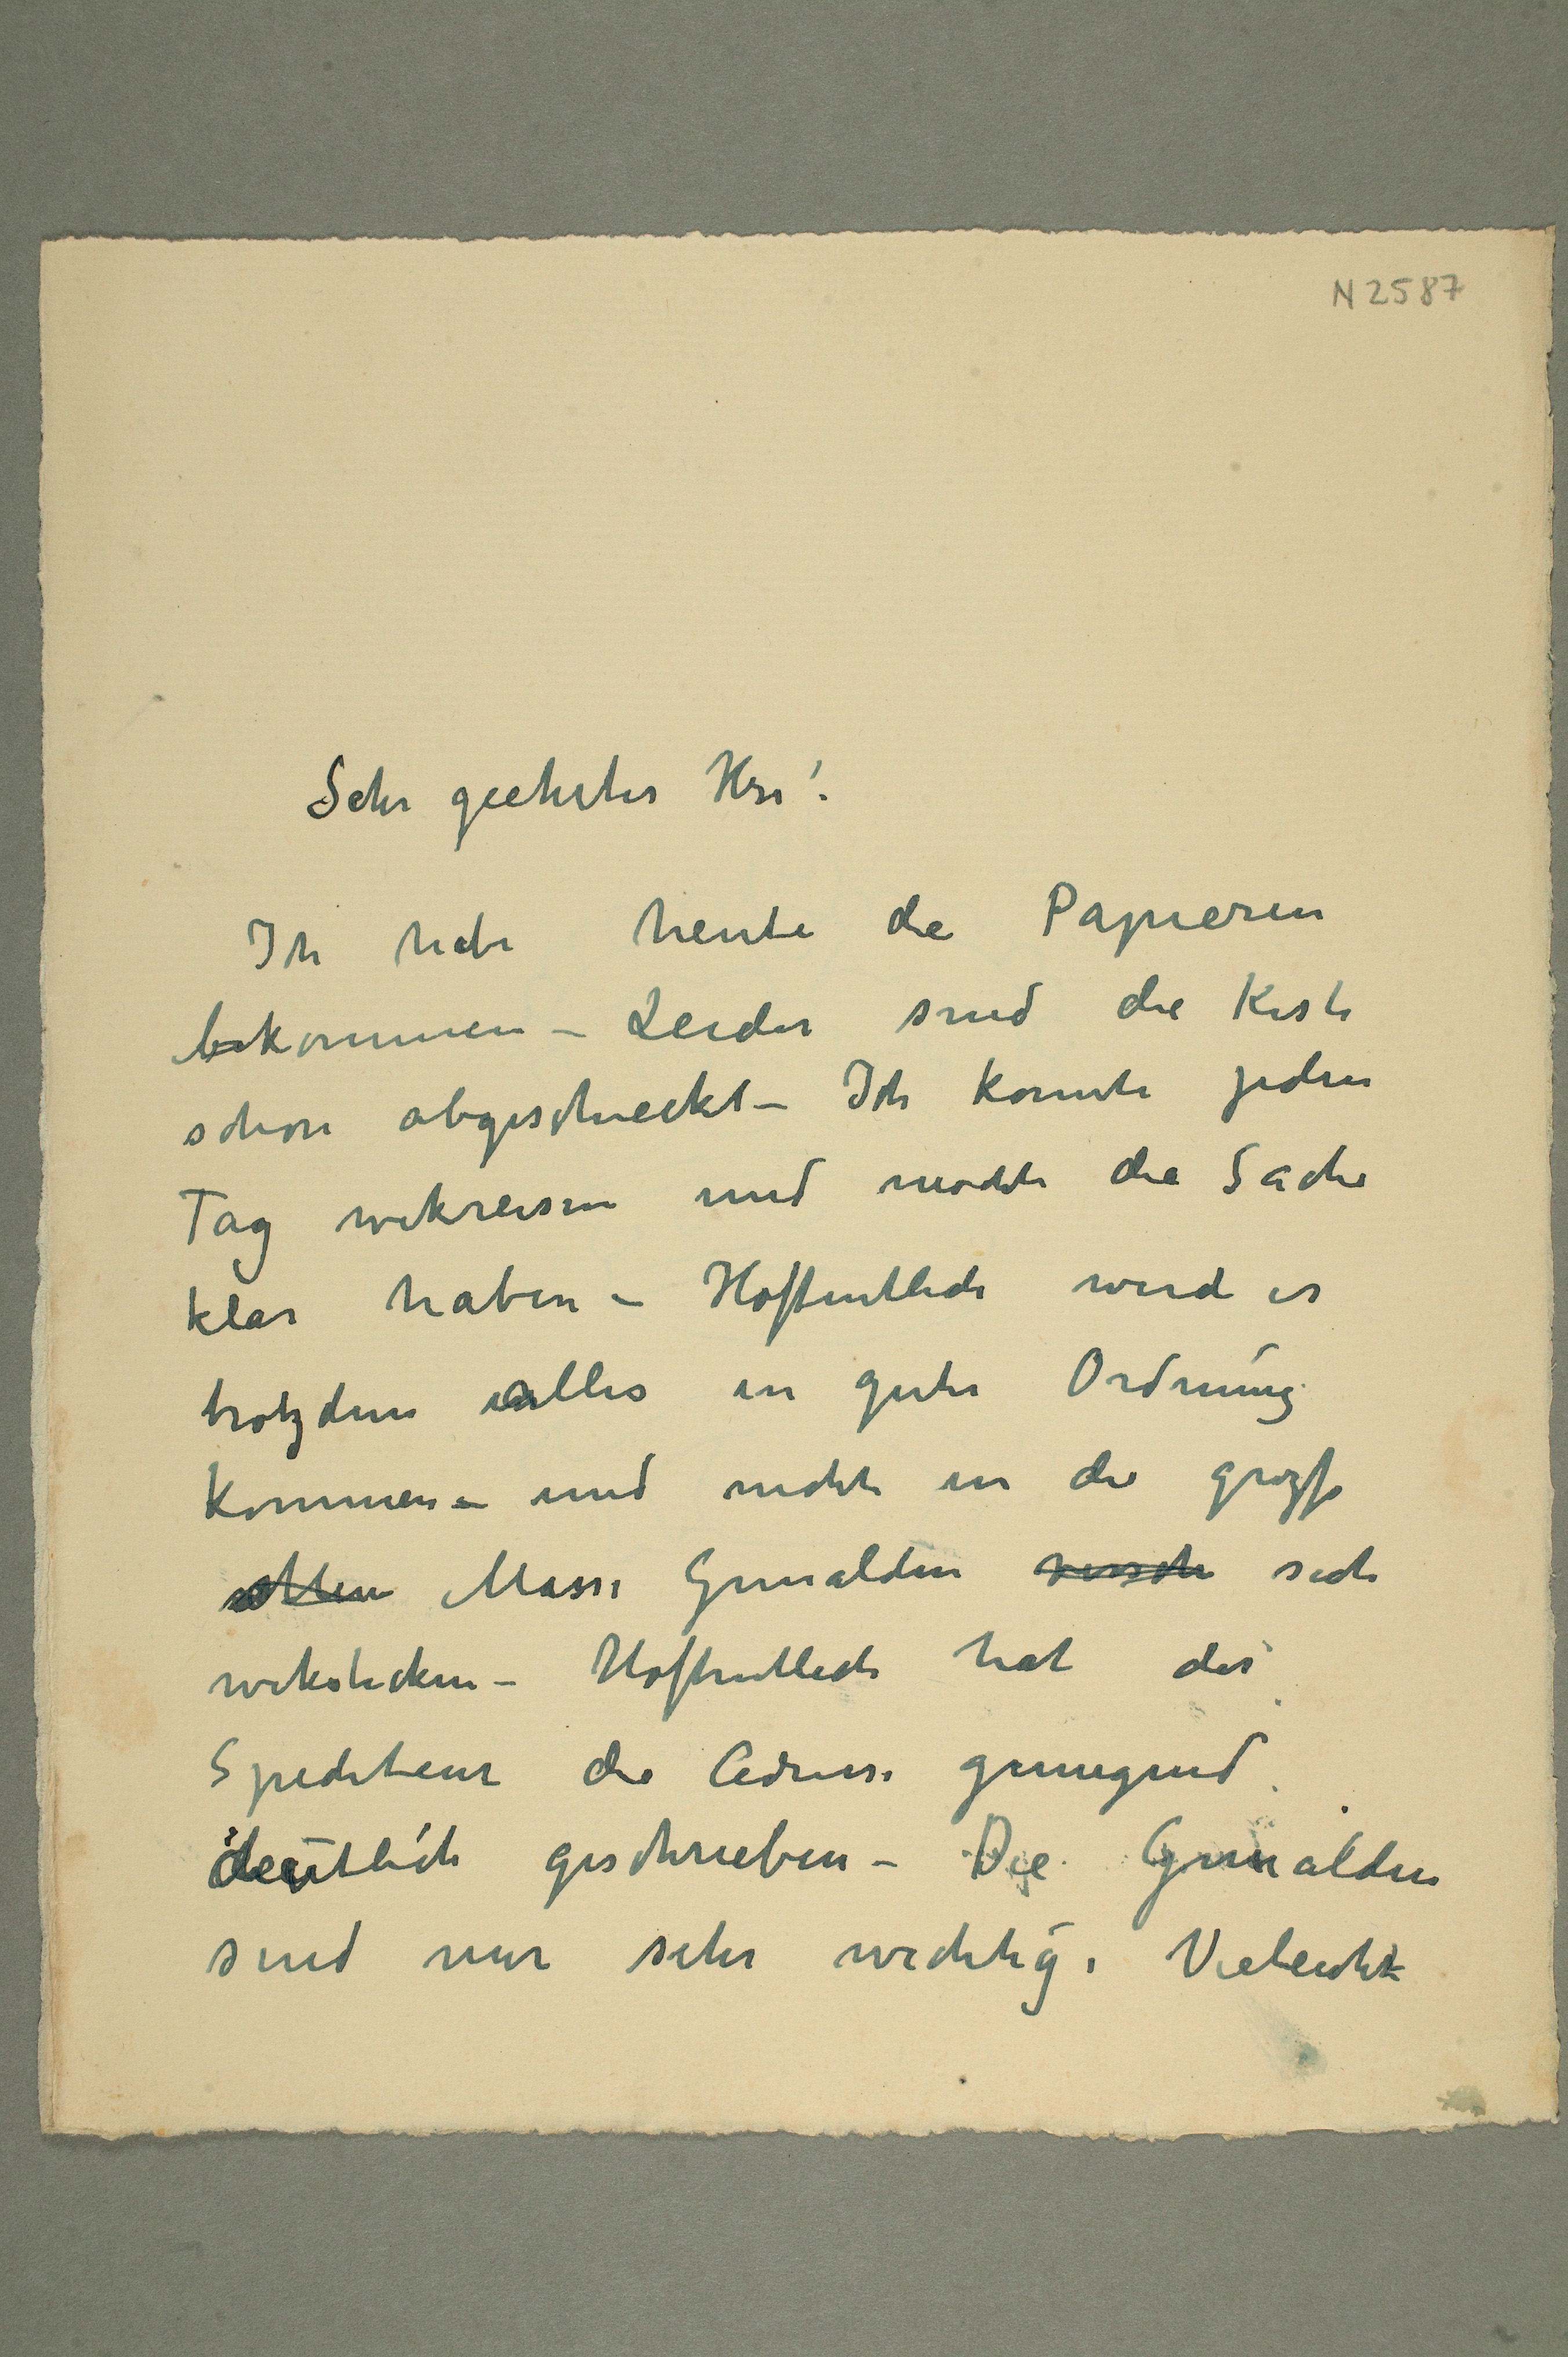 N 2587
Sehr geehrter Herr!
Ich habe heute die Papieren
bekommen – Leider sind die Kiste
schon abgeschieckt – Ich konnte jeden
Tag wekreisen und mochte die Sache
klar haben – Hoffentlich wird es
trotzdem alles in guter Ordnung
kommen – und nicht in die grosse
Masse Gemälden sich
wekstecken – Hoffentlich hat der
Spediteur die Adresse genuegend
deutlich geschrieben – Die Gemälden
sind mir sehr wichtig. Vieleicht